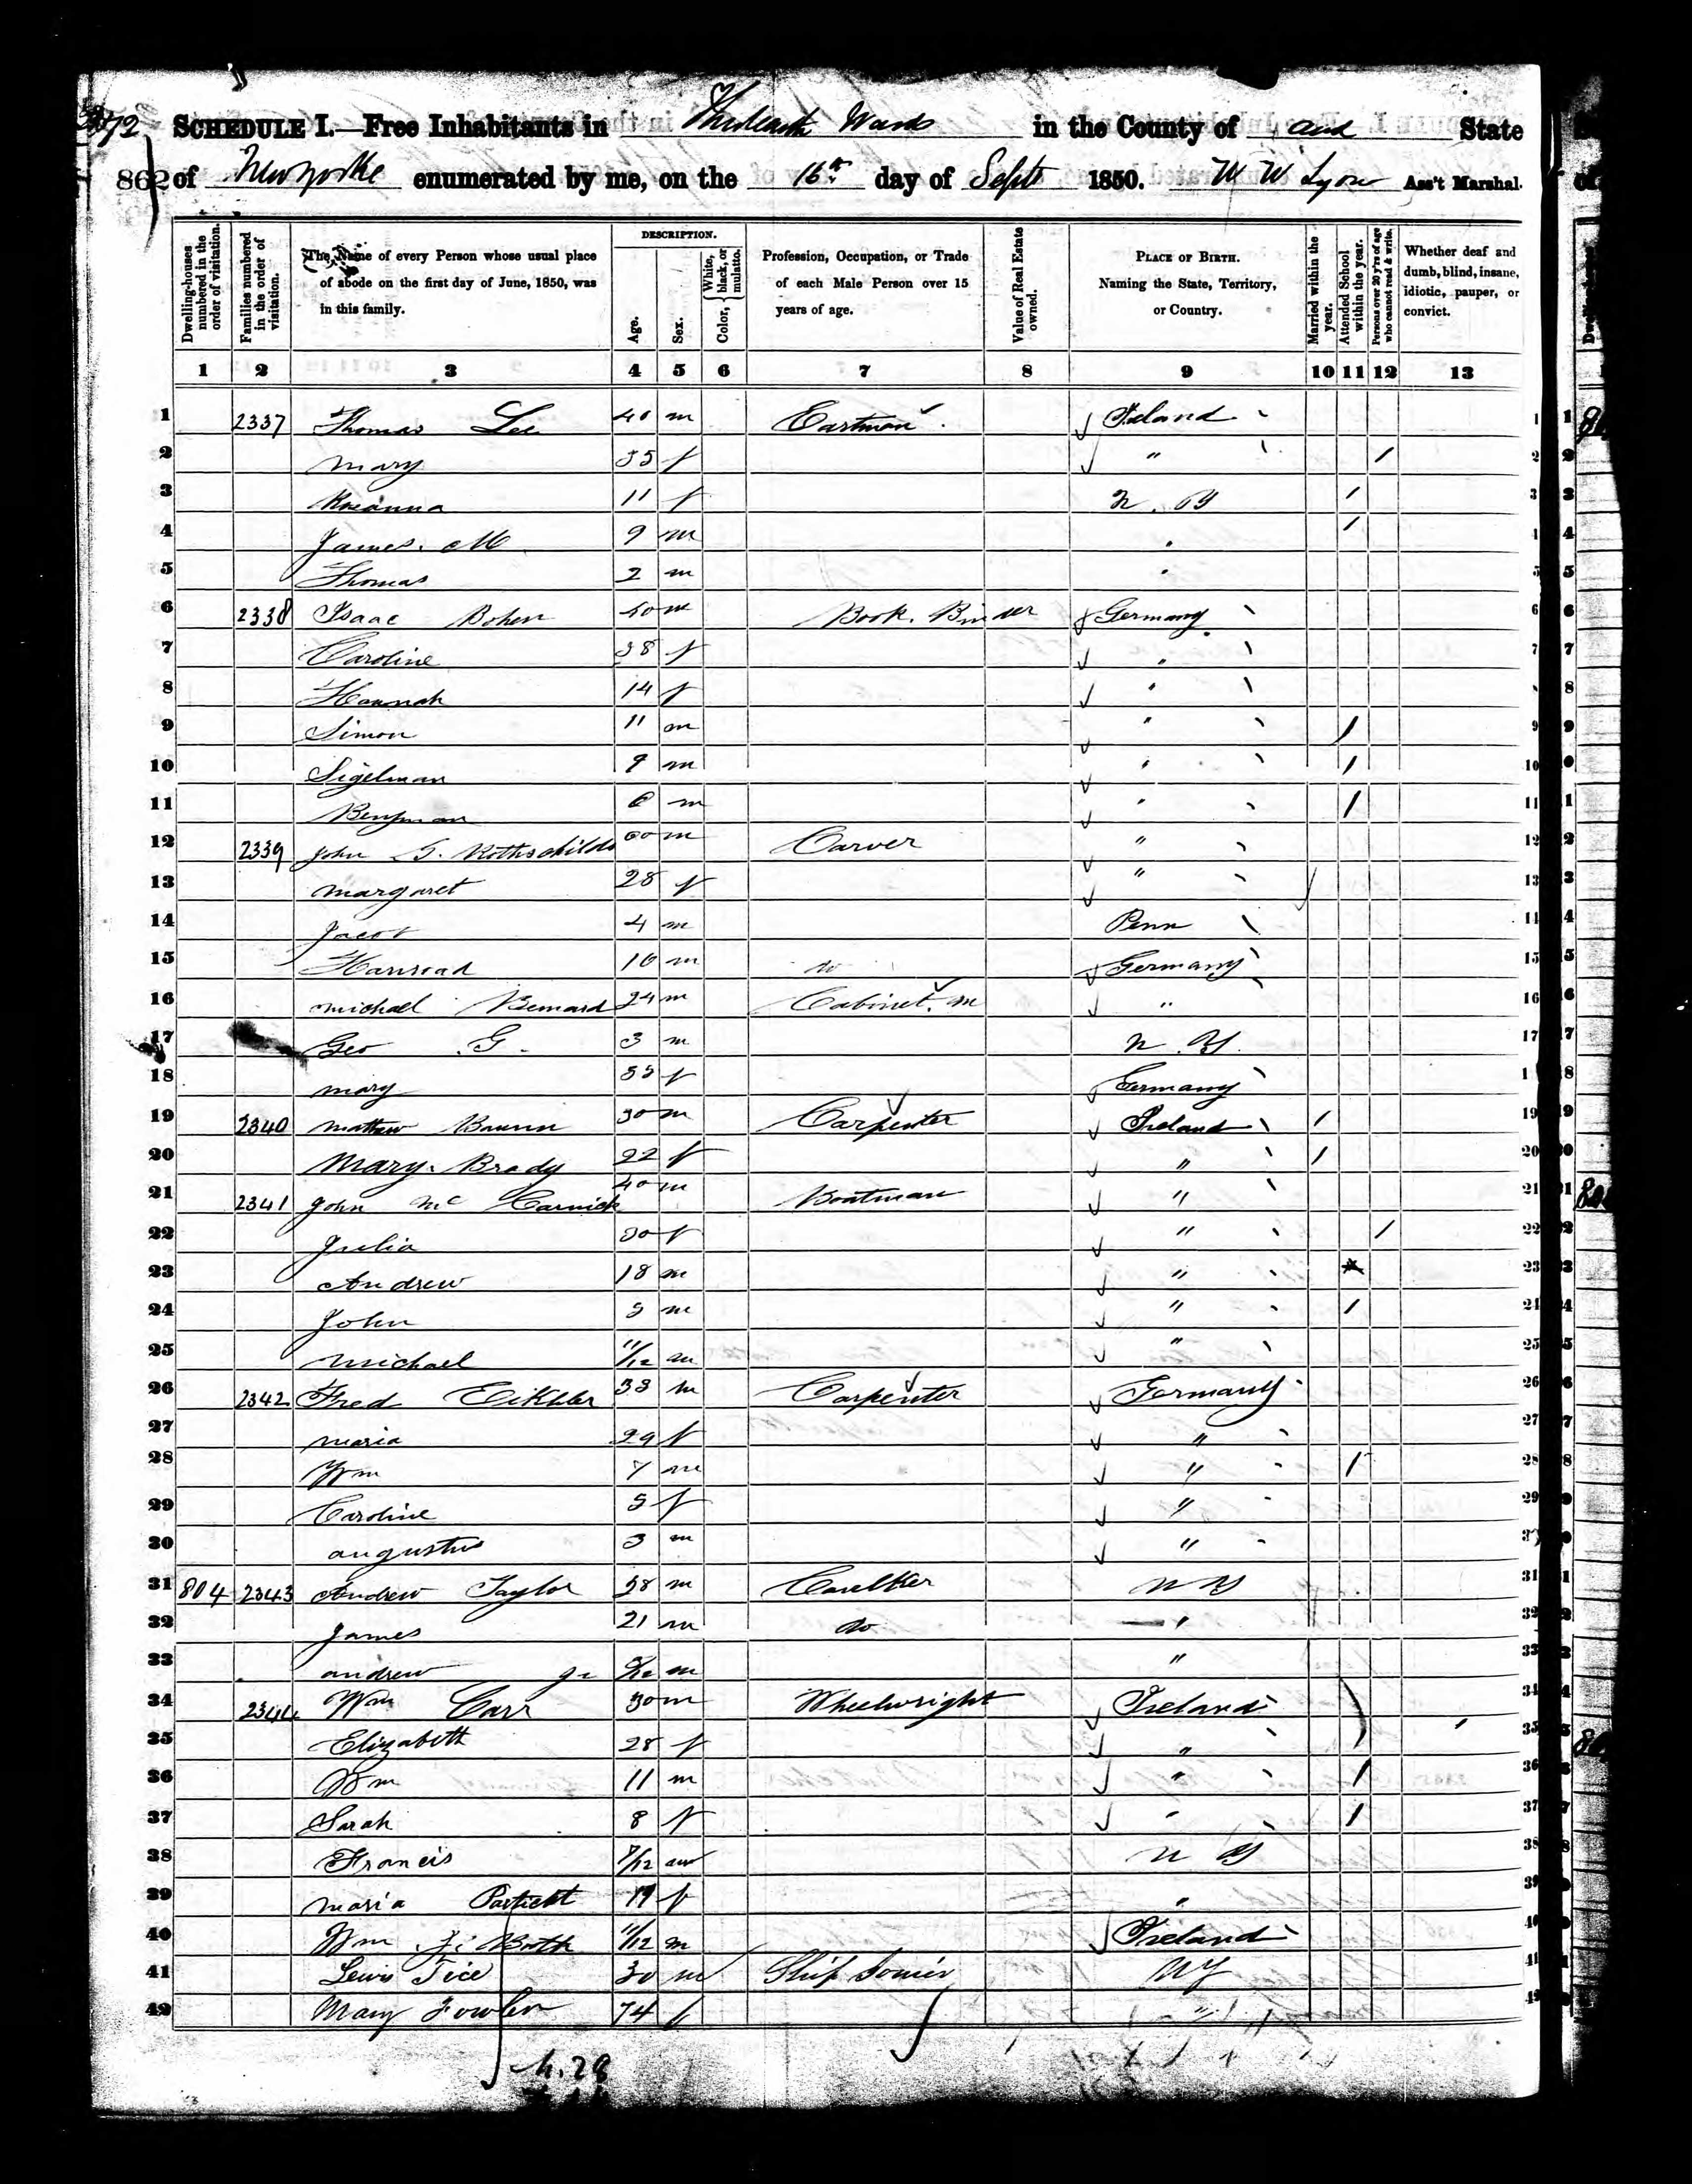 372
862
SCHEDULE I.—Free Inhabitants in Thirteenth Ward in the County of and State
of New York enumerated by me, on the 16th day of Sept 1850. W W Lyon Ass't Marshal.
Dwelling-houses numbered in the order of visitation.
Families numbered in the order of visitation.
The Name of every Person whose usual place of abode on the first day of June, 1850, was in this family.
DESCRIPTION.
Age.
Sex.
Color, { White, black, or mulatto.
Profession, Occupation, or Trade of each Male Person over 15 years of age.
Value of Real Estate owned.
PLACE OF BIRTH. Naming the State, Territory, or Country.
Married within the year.
Attended School within the year.
Persons over 20 y'rs of age who cannot read & write.
Whether deaf and dumb, blind, insane, idiotic, pauper, or convict.
1 2 3 4 5 6 7 8 9 10 11 12 13
1 2337 Thomas Lee m Cartman Ireland 1
2 Mary 35 f " / 2
3 Roseanna 11 f N. Y / 3
4 James. M 9 m " / 4
5 Thomas 2 m " 5
6 2338 Isaac Bohen 40 m Book. Binder Germany 6
7 Caroline 38 f " 7
8 Hannah 14 f " 8
9 Simon 11 m " / 9
10 Sigelman 9 m " / 10
11 Benjman 6 m " / 11
12 2339 John G. Rothschilds m Carver " 12
13 Margaret 28 f " 13
14 Jacob 4 m Penn 14
15 16 m do Germany 15
16 Michael 24 m Cabinet. M " 16
17 Geo G. 3 m N. Y. 17
18 Mary f Germany 18
19 2340 Mathew 30 m Carpenter Ireland / 19
20 Mary. Brady 22 f " / 20
21 2341 John Mc Carnick 40 m Boatman " 21
22 Julia 30 f " / 22
23 Andrew 18 m " 23
24 John 5 m " / 24
25 Michael 11/12 m " 25
26 2342 Fred Eikhler 33 m Carpenter Germany 26
27 Maria 29 f " 27
28 Wm 7 m " / 28
29 Caroline 5 f " 29
30 Augustus 3 m " 30
31 804 2343 Andrew Taylor m Caulker N Y 31
32 James 21 m do " 32
33 Andrew Jr m " 33
34 2344 Wm Carr 30 m Wheelwright Ireland 34
35 Elizabeth 28 f " 35
36 Wm 11 m " / 36
37 Sarah 8 f " / 37
38 Francis 7/12 m N Y 38
39 Maria 19 f " 39
40 Wm 11/12 m Ireland 40
41 Lewis Tice 30 m Ship Joiner N Y 41
42 Mary Fowler 74 f " 42